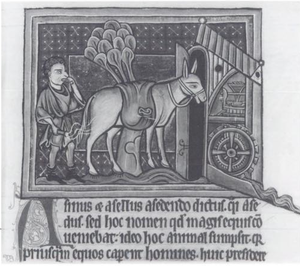 Asinus & asellus asedendo dictus. q̄ ase
dus. sed hoc nomen qd magis equis cō
ueniebat: ideo hoc animal sumpsit. q̄
priusq̄m equos caperent homines. huic